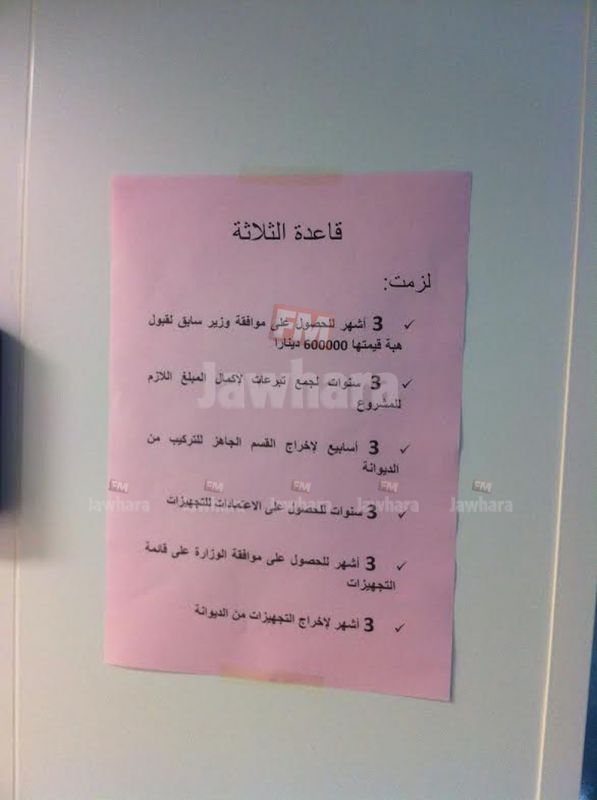 قاعدة الثلاثة
لزمت:
✓ 3 أشهر للحصول على موافقة وزير سابق لقبول
هبة قيمتها 600000 دينارا
✓ 3 سنوات لجمع تبرعات لإكمال المبلغ اللازم
للمشروع
✓ 3 أسابيع لإخراج القسم الجاهز للتركيب من
الديوانة
✓ 3 سنوات للحصول على الاعتمادات للتجهيزات
✓ 3 أشهر للحصول على موافقة الوزارة على قائمة
التجهيزات
✓ 3 أشهر لإخراج التجهيزات من الديوانة
FM
Jawhara
FM FM FM FM FM
Jawhara Jawhara Jawhara Jawhara Jawhara